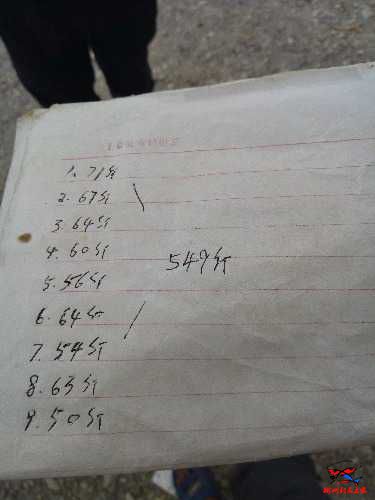 1. 71斤
2. 67斤
3. 64斤
4. 60斤
5. 56斤
549斤
6. 64斤
7. 54斤
8. 63斤
9. 50斤